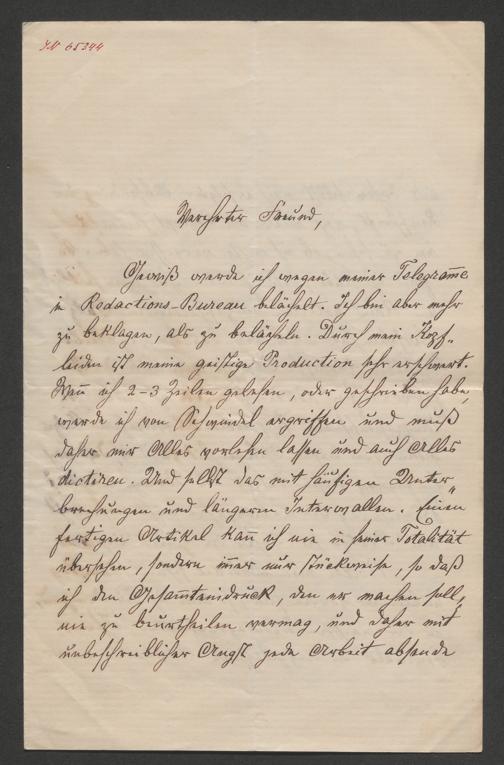 JN 65344
Verehrter Freund,
Gewiß werde ich wegen meiner Telegram̅e
in Redactions-Bureau belächelt. Ich bin aber mehr
zu beklagen, als zu belächeln. Durch mein Kopf„
leiden ist meine geistige Production sehr erschwert.
Wen̅ ich 2-3 Zeilen gelesen, oder geschrieben habe,
werde ich von Schwindel ergriffen und muß
daher mir Alles vorlesen lassen und auch Alles
dictiren. Und selbst das mit häufigen Unter„
brechungen und längeren Intervallen. Einen
fertigen Artikel kan̅ ich nie in seiner Totalität
übersehen, sondern im̅er nur stückweise, so daß
ich den Gesam̅teindruck, den er machen soll,
nie zu beurtheilen vermag, und daher mit
unbeschreiblicher Angst jede Arbeit absende